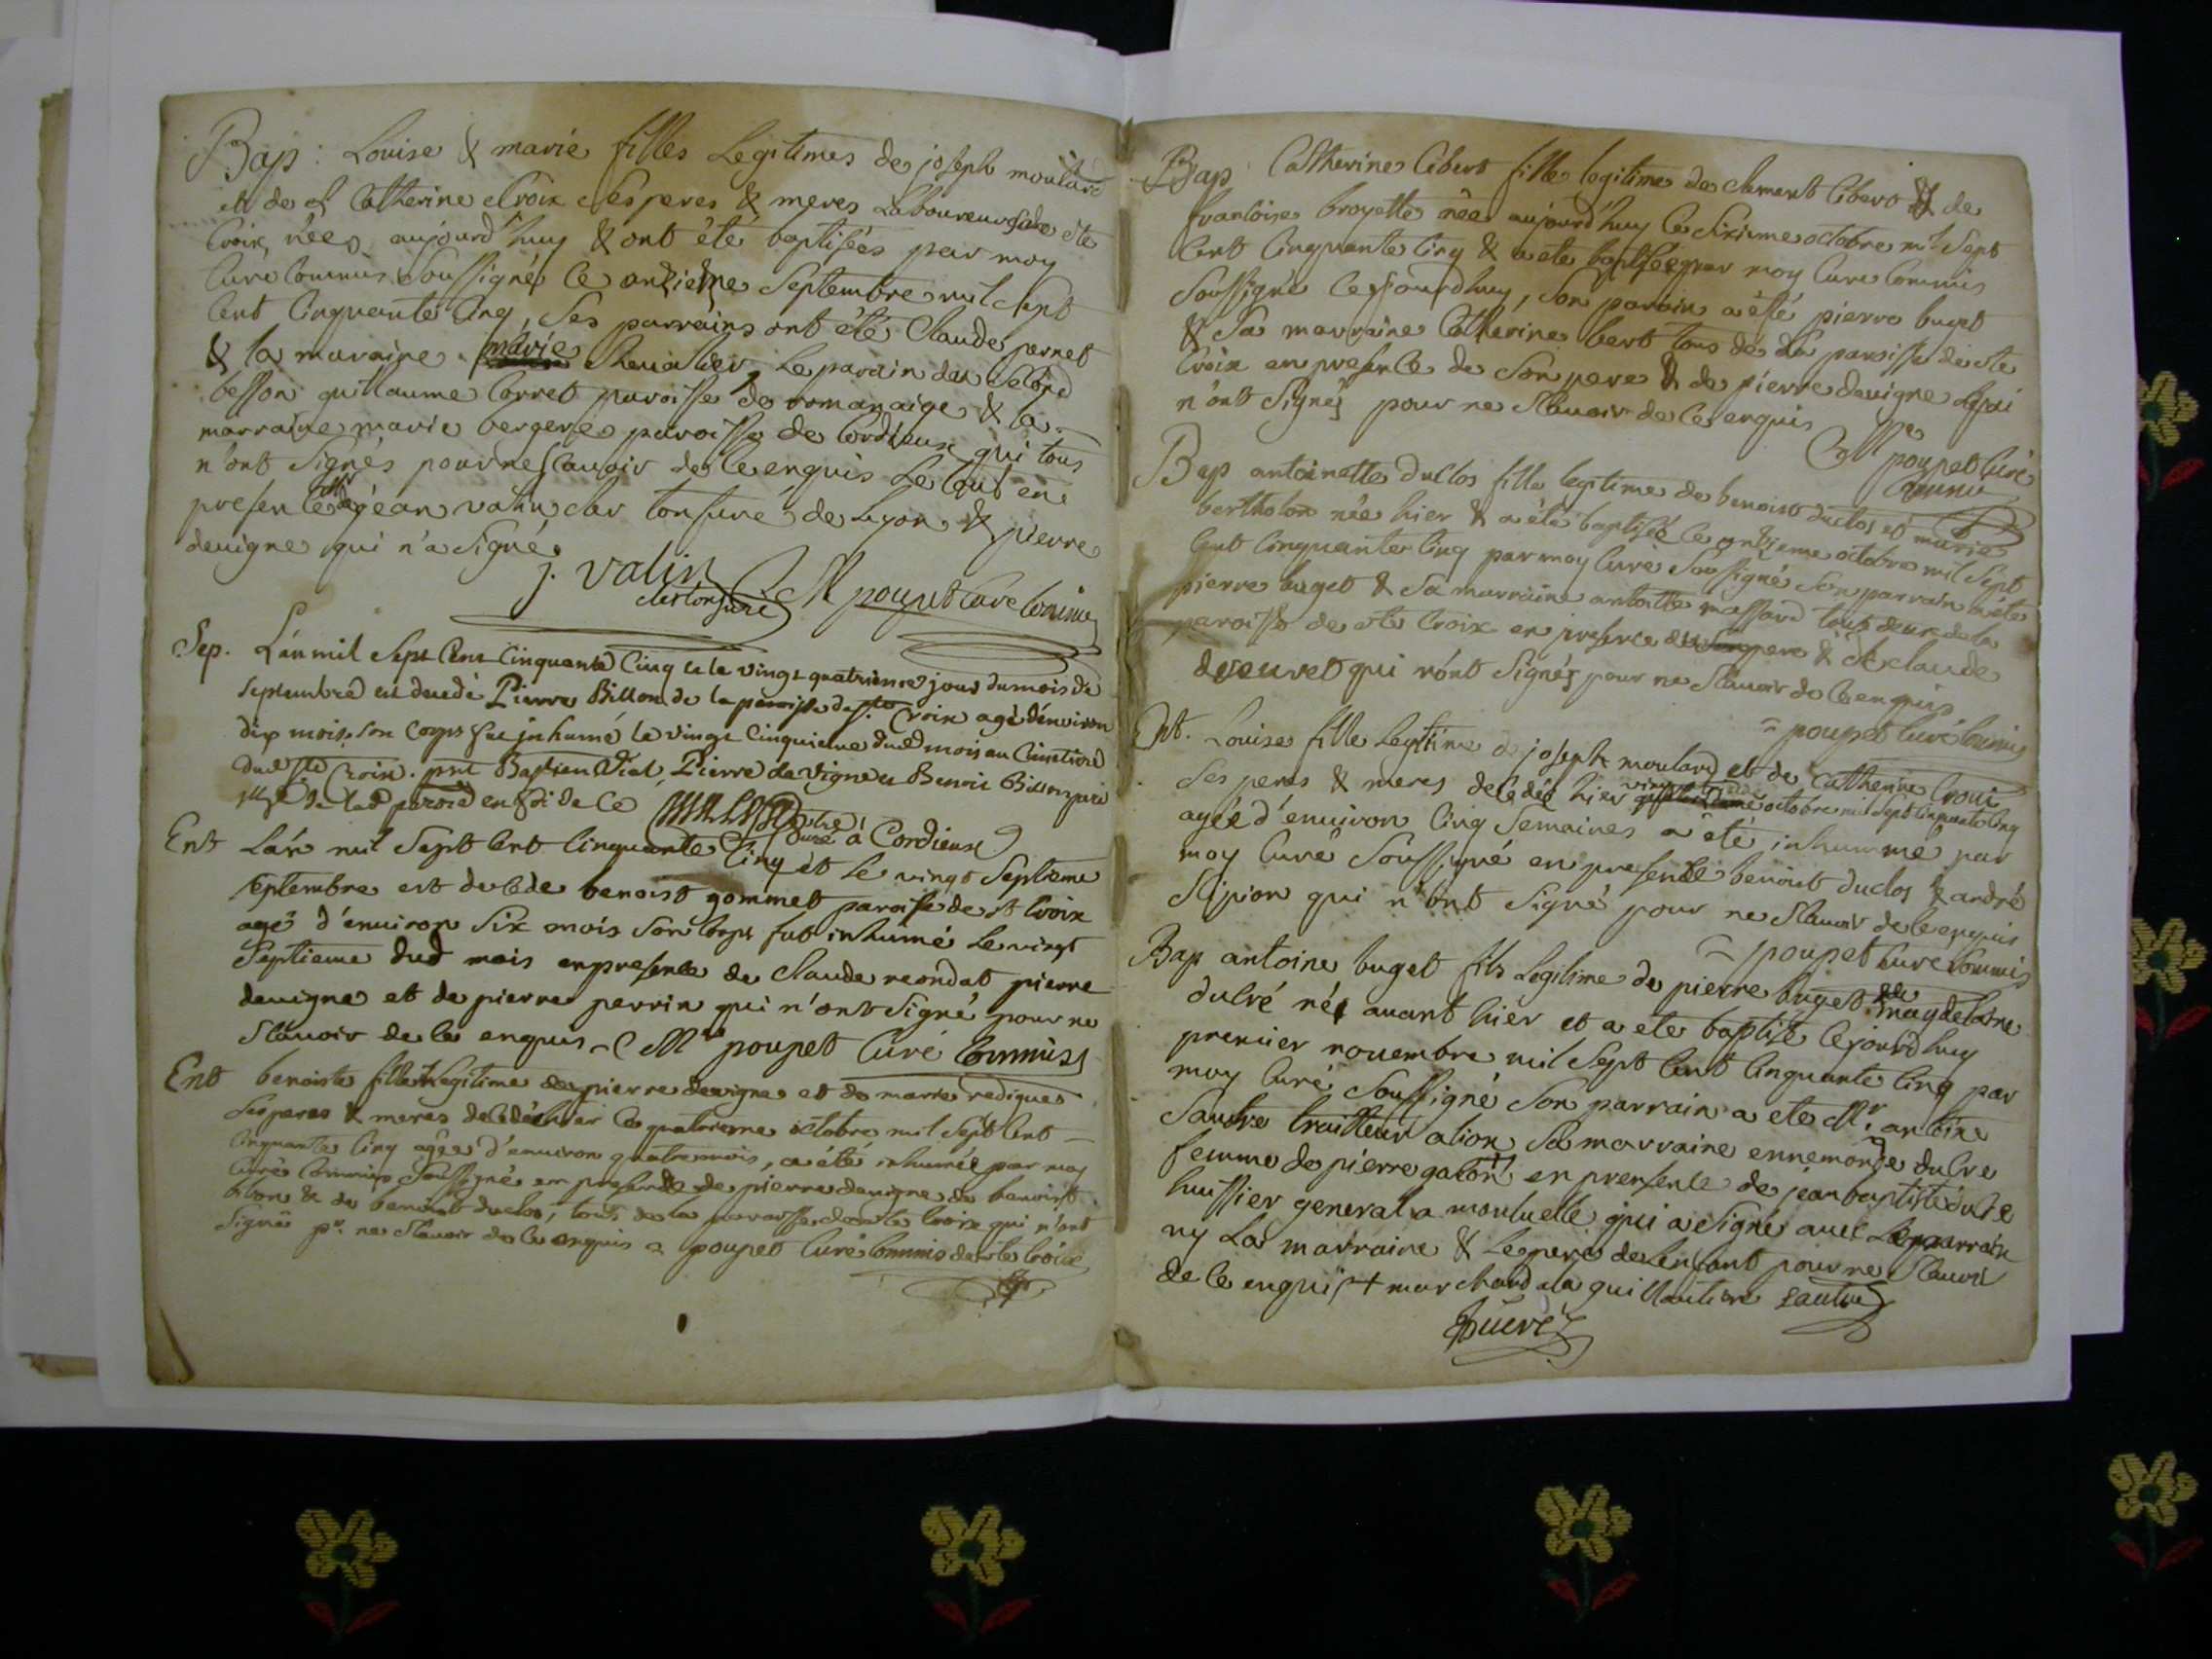 Bap : Louise & marie filles Legitimes de joseph moulard
et de Catherine Croix ses peres & meres Laboureurs de ste
Croix, nées aujourd'huy & ont été baptisées par moy
Curé Commis soussigné ce onzieme Septembre mil Sept
Cent Cinquante Cinq, ses parrains ont été Claude pernet
& la maraine marie Chevallier, Le parain du Second
besson guillaume Corret paroisse de romanaige & la
marraine marie bergere paroisse de Cordieux qui tous
n'ont Signés pour ne Scavoir de ce enquis Le tout en
presence de jean valin cler tonsuré de Lyon & pierre
devigne qui n'a Signé
J. valin
cler tonsuré M poupet Curé Commis
Sep. L'an mil Sept Cent Cinquante Cinq et le vingt quatrieme jour du mois de
septembre est decedé Pierre Billon de la paroisse de ste Croix agé d'environ
dix mois, son corps fut inhumé le vingt cinquieme dud mois au Cimetiere
dud ste Croix. pnt Bastien Vial, Pierre de Vigne et Benoit Billon pere
de lad paroisse en foi de ce
Curé à Cordieux
Ent L'an mil Sept Cent Cinquante Cinq et Le vingt Septieme
septembre est decede benoist gommet paroisse de st Croix
agé d'environ Six mois Son Corps fut inhumé Le vingt
Septieme dud mois en presence de Claude reondat pierre
devigne et de pierre perrin qui n'ont Signé pour ne
Scavoir de ce enquis M poupet Curé Commis
Ent benoite fille Legitime de pierre devigne et de marie
Ses peres & meres decedée hier Ce quatrieme octobre mil Sept Cent
Cinquante Cinq agée d'environ quatre mois, a été inhumée par moy
Curé Commis Soussigné en presence de pierre devigne de benoist
bilon & de benoist duclos, tous de la paroisse de ste Croix qui n'ont
Signé pr. ne Scavoir de ce enquis poupet Curé Commis de ste Croix
Bap Catherine Cibert fille legitime de clement Cibert & de
francoise broyette née aujourd'huy Ce Sixieme octobre mil Sept
Cent Cinquante Cinq & a ete baptisée par moy Curé Commis
Soussigné Cejourd'huy, Son parain a été pierre buget
& Sa marraine Catherine bert tous de La paroisse de ste
Croix en presence de Son pere & de pierre devigne qui
n'ont Signés pour ne Scavoir de ce enquis
M poupet Curé
Commis
Bap antoinette duclos fille legitime de benoist duclos et marie
bertholon née hier & a été baptisée Ce onzieme octobre mil Sept
Cent Cinquante Cinq par moy Curé Soussigné Son parrain a été
pierre buget & Sa marraine antoitte massard tous deux de la
paroisse de ste Croix en presence de Son pere & de claude
qui n'ont Signés pour ne Scavoir de ce enquis
poupet Curé Commis
Ent. Louise fille Legitime de joseph moulard et de Catherine Croix
Ses peres & meres decedée hier octobre mil Sept Cinquante Cinq
agée d'environ Cinq Semaines a été inhumme par
moy Curé Soussigné en presence benoist duclos & andré
Sipion qui n'ont Signé pour ne Scavoir de ce enquis
poupet Curé Commis
Bap antoine buget fils Legitime de pierre buget & de magdelaine
dulré né avant hier et a ete baptisé Cejourd'huy
premier novembre mil Sept Cent Cinquante Cinq par
moy Curé Soussigné Son parrain a ete Mr. antoine
Sautre traitteur alion Sa marraine ennemonde dulre
femme de pierre en presence de jean baptiste dulre
huissier general a montuelle qui a Signé avec Le parrain
ny La marraine & Le pere de Lenfant pour ne Scavoir
de ce enquis + marchand a la guillautiere Sautre